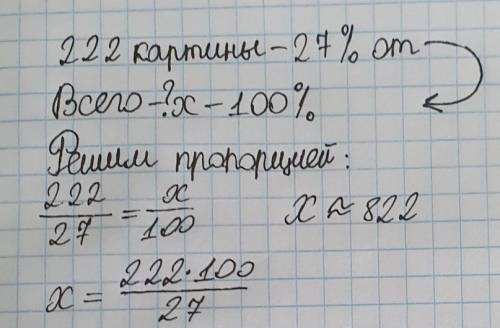 222 картины - 27% от
Всего - ? x - 100%
Решим пропорцией:
222/27 = x/100   x ≈ 822
x = 222·100/27